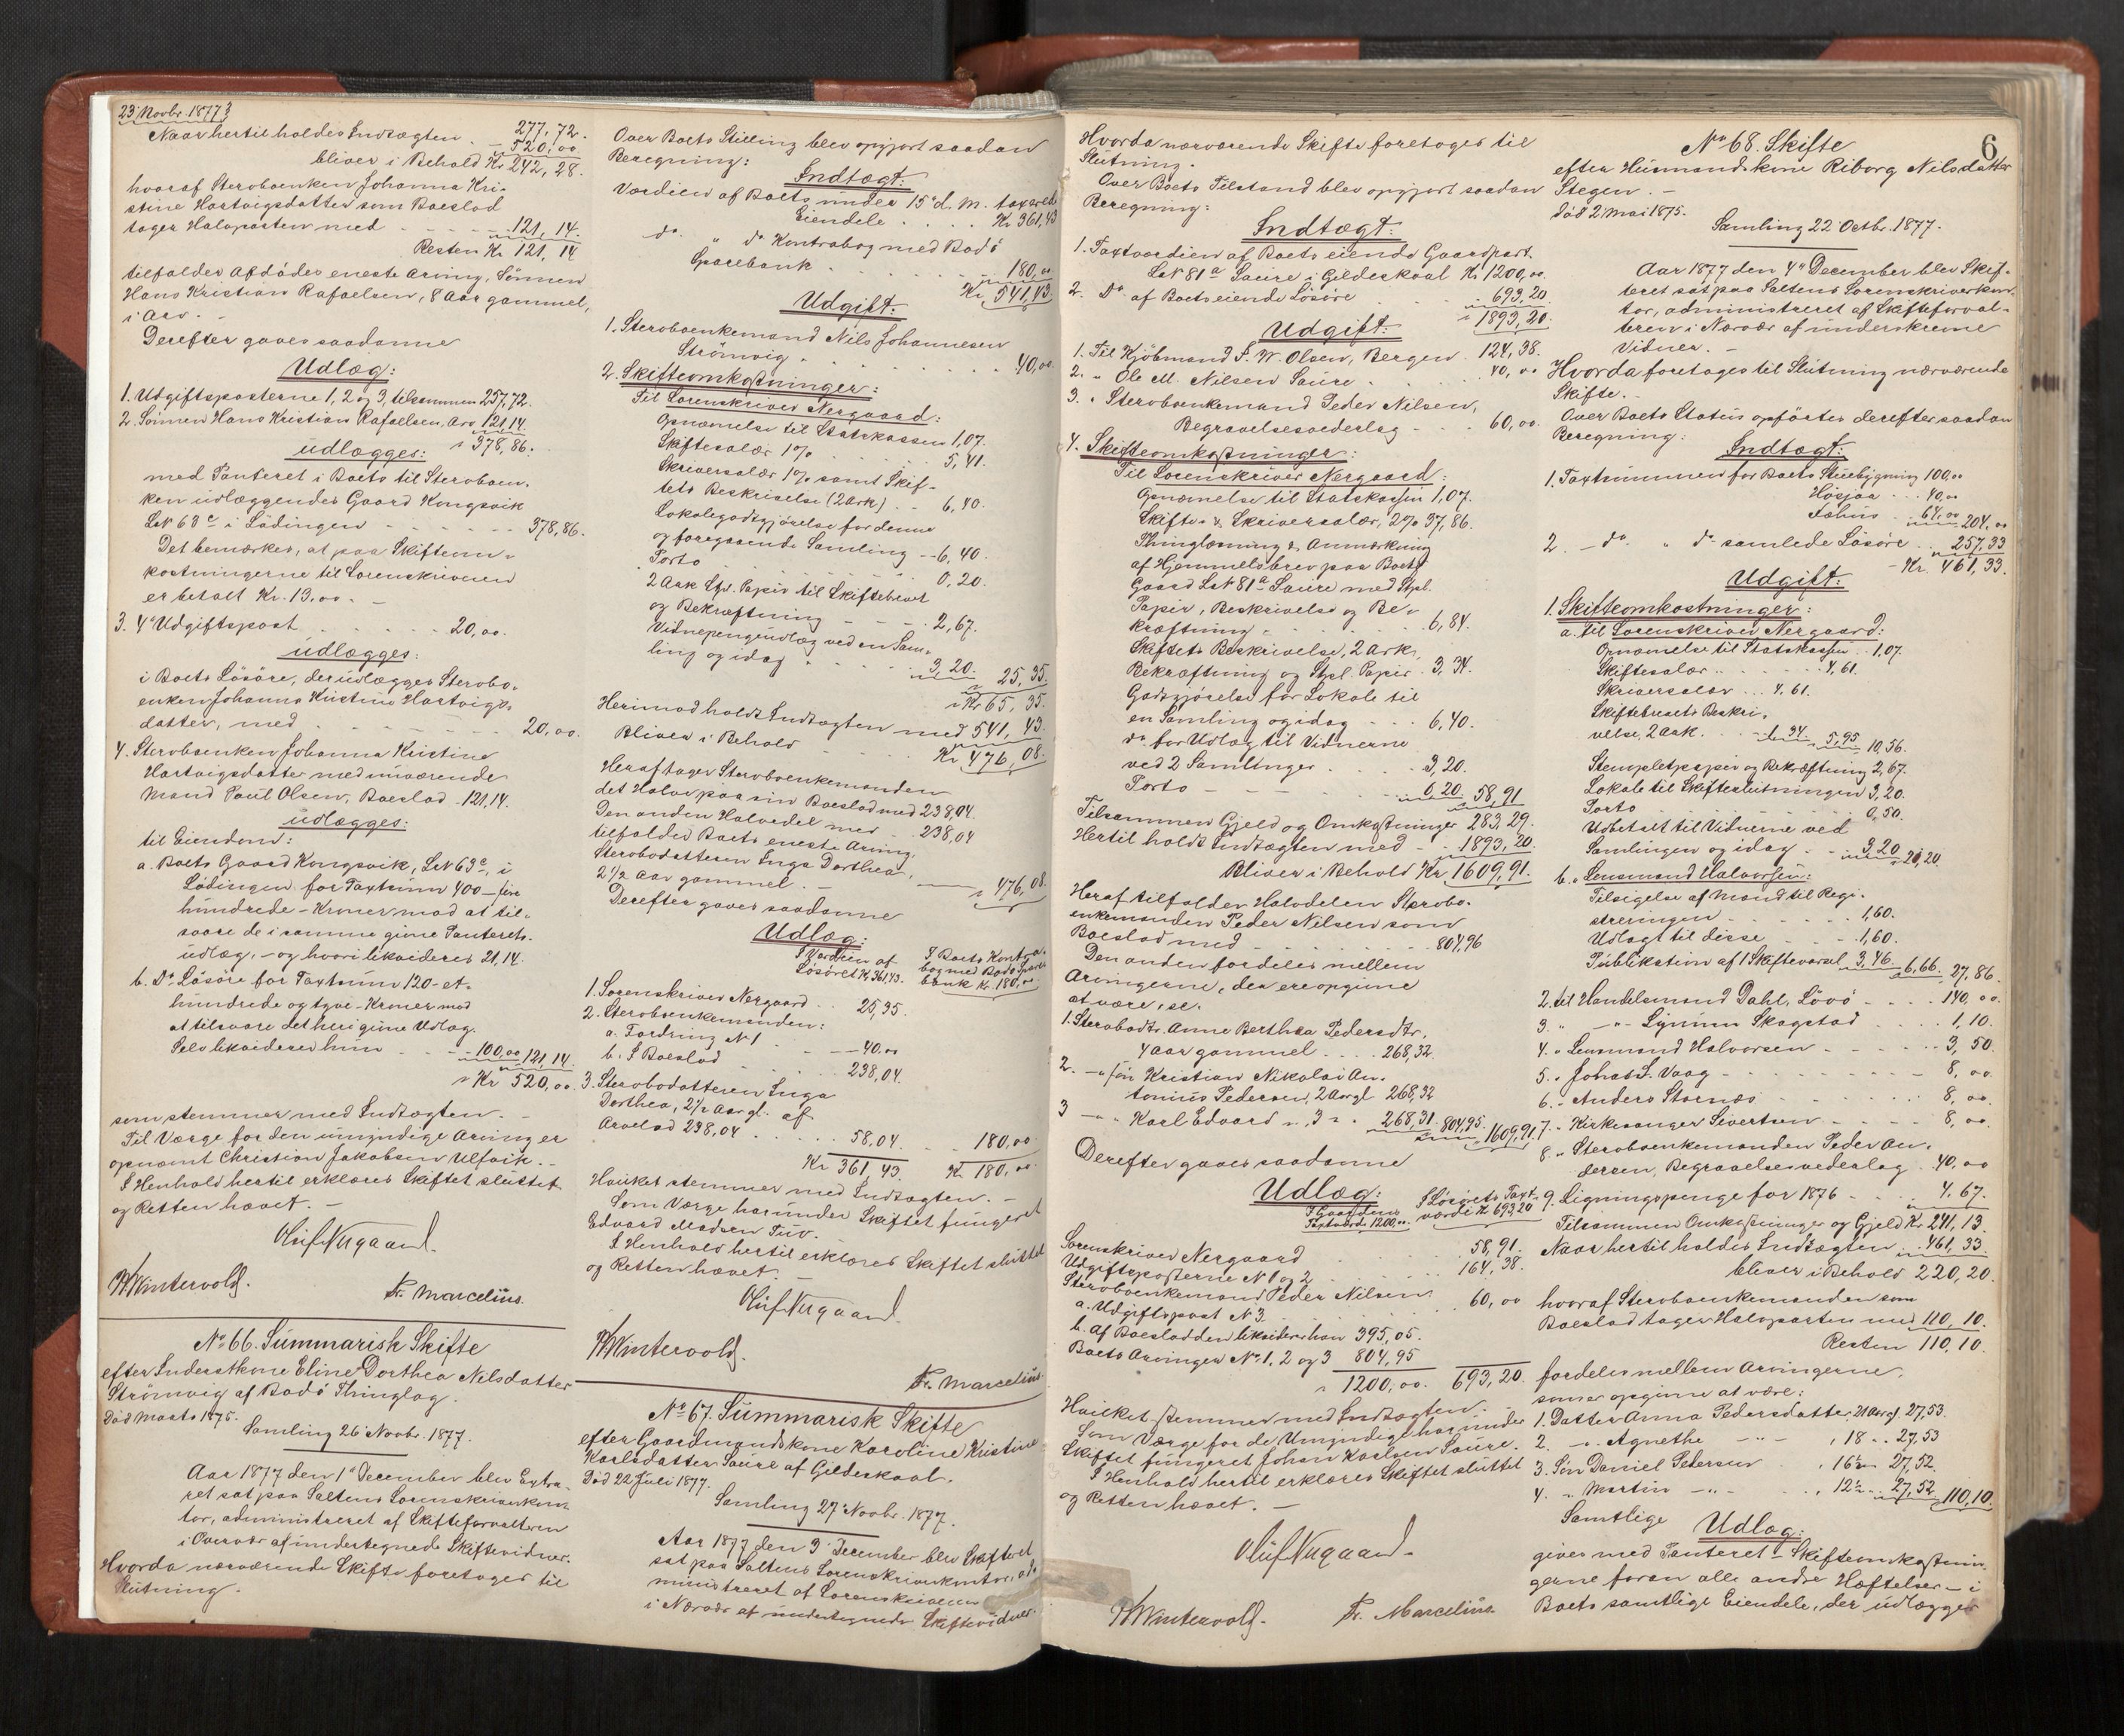 23 Novbr. 1877
Naar hertil holdes Indtægten . 277,72.
- 520,00
bliver i Behold Kr 242,28.
hvoraf Sterboenken Johanna Kri-
stine Hartvigsdatter som Boeslod
tager Halvparten med - - - 121,14.
Resten Kr 121,14
tilfalder Afdødes eneste Arving, Sønnen
Hans Kristian Rafaelsen, 8 Aar gammel,
i Arv. -
Derefter gaves saadanne
Udlæg:
1. Udgiftsposterne 1, 2 og 3, tilsammen 257,72.
2. Sønnen Hans Kristian Rafaelsen, Arv 121,14.
" 378,86.
udlægges:
med Panteret i Boets til Sterboen-
ken udlæggendes Gaard Kongsvik
LN 63c i Lødingen - - - - 378,86.
Det bemærkes, at paa Skifteom-
kostningerne til Sorenskriveren
er betalt Kr. 13,00. -
3. 4de Udgiftspost . . . . 20,00.
udlægges:
i Boets Løsøre, der udlægges Sterbo-
enken Johanna Kristine Hartvigs-
datter, med - - - - - 20,00.
4. Sterboenken Johanna Kristine
Hartvigsdatter med nuværende
Mand Poul Olsen, Boeslod . 121,14.
udlægges:
til Eiendom:
a. Boets Gaard Kongsvik, LN 63c, i
Lødingen for Taxtsum 400 - fire
hundrede - Kroner mod at til-
svare de i samme givne Panterets-
udlæg, - og hvori likvideres 21,14.
b. Do Løsøre for Taxtsum 120 - et-
hundrede og tyve - Kroner mod
at tilsvare det heri givne Udlæg.
Selv likviderer hun - - 100,00 121,14.
" Kr 520,00.
som stemmer med Indtægten. -
Til Værge for den umyndige Arving er
opnæmt Christian Jakobsen Ulfsik. -
I Henhold hertil erklæres Skiftet sluttet
og Retten hævet. -
Oluf Nergaard.
H Wintervold. Fr. Marcelius.
No 66. Summarisk Skifte
efter Inderstkone Eline Dorthea Nilsdatter
Strømvig af Bodø Thinglag.
Død Marts 1875.
Samling 26 Novbr. 1877.
Aar 1877 den 1te December blev Extra-
ret sat paa Saltens Sorenskriverkon-
tor, administreret af Skifteforvalteren
i Overvær af undertegnede Skiftevidner.
Hvorda nærværende Skifte foretoges til
Slutning.
Over Boets Stilling blev opgjort saadan
Beregning:
Indtægt:
Værdien af Boets under 15de d. M. taxerede
Eiendele . . . . Kr 361,43
do " do Kontrabog med Bodø
Sparebank . . . . . 180,00
Kr, 541,43.
Udgift:
1. Sterboenkemand Nils Johannesen
Strømvig . . . . . 40,00.
2. Skifteomkostninger:
Til Sorenskriver Nergaard:
Opnæmelse til Statskassen 1,07.
Skiftesalær 1% . . . . 5,41.
Skriversalær 1% samt Skif-
tets Beskrivelse (2 Ark) . . 6,40.
Lokalegodtgjørelse for denne
og foregaaende Samling - - 6,40.
Porto . . . . . . 0,20.
2 Ark Stpl. Papir til Skiftebrevet
og Bekræftning - - - 2,67.
Vidnepengeudlæg ved en Sam-
ling og idag . . . . 3,20. 25,35.
" Kr 65,35.
Herimod holdt Indtægten med 541,43.
Bliver i Behold - - - Kr 476,08.
Heraf tager Sterboenkemanden
det Halve paa sin Boeslod med 238,04.
Den anden Halvedel med . . 238,04
tilfalder Boets eneste Arving,
Sterbodatteren Inga Dorthea,
2 1/2 Aar gammel. - " 476,08.
Derefter gaves saadanne
Udlæg:
I Værdien af
Løsøret Kr 361,43.
I Boets Kontra-
bog med Bodø Spare-
bank Kr. 180,00.
1. Sorenskriver Nergaard . . 25,35.
2. Sterboenkemanden:
a. Fordring N 1 . . . 40,00
b. I Boeslod . . . 238,04.
3. Sterbodatteren Inga
Dorthea, 2 1/2 Aar gl. af
Arvelod 238,04 . . . . 58,04. . . 180,00.
Kr 361,43. Kr 180,00.
Hvilket stemmer med Indtægten. -
Som Værge har under Skiftet fungeret
Edvard Madsen Tuv.
I Henhold hertil erklæres Skiftet sluttet
og Retten hævet. -
Oluf Nergaard.
H Wintervold.
Fr. Marcelius.
No 67. Summarisk Skifte
efter Gaardmandskone Karoline Kristine
Karlsdatter Saure af Gildeskaal.
Død 22 Juli 1877.
Samling 27 Novbr. 1877.
Aar 1877 den 3. December blev Skifteret
sat paa Saltens Sorenskriverkontor, ad-
ministreret af Sorenskriveren
i Nærvær af undertegnede Skiftevidner.
6
Hvorda nærværende Skifte foretoges til
Slutning.
Over Boets Tilstand blev opgjort saadan
Beregning:
Indtægt:
1. Taxtværdien af Boets eiende Gaardpart.
LN 81a Saure i Gildeskaal Kr 1200,00.
2. Do af Boets eiende Løsøre . . " 693,20.
" 1893,20.
Udgift:
1. Til Kjøbmand P. W. Olsen, Bergen . 124,38.
2. " Ole M. Nilsen Saure . . . . 40,00
3. " Sterboenkemand Peder Nilsen,
Begravelsesvederlag - - - 60,00.
4. Skifteomkostninger:
Til Sorenskriver Nergaard:
Opnæmelse til Statskassen 1,07.
Skifte- & Skriversalær, 2% 37,86.
Thinglæsning & Anmærkning
af Hjemmelsbrev paa Boets
Gaard LN 81a Saure med Stpl.
Papir, Beskrivelse og Be-
kræftning . . . . . 6,84.
Skiftets Beskrivelse, 2 Ark,
Bekræftning og Stpl. Papir . 3,34.
Godtgjørelse for Lokale til
en Samling og idag - - - 6,40.
do for Udlæg til Vidnerne
ved 2 Samlinger . . . 3,20.
Porto - - - - - 0,20. 58,91
Tilsammen Gjeld og Omkostninger 283,29.
Hertil holdt Indtægten med - - 1893,20.
Bliver i Behold Kr 1609,91.
Heraf tilfalder Halvdelen Sterbo-
enkemanden Peder Nilsen som
Boeslod med - - - - - 804,96
Den anden fordeles mellem
Arvingerne, der ere opgivne
at være, se.
1. Sterbodtr. Anne Berthea Pedersdtr,
4 Aar gammel . . . . 268,32.
2. -"- søn Kristian Nikolai An-
tonius Pedersen, 2 Aar gl 268,32
3 -"- " Karl Edvard " 3 " . 268,31. 804,95. 1609,91.
Derefter gaves saadanne
Udlæg:
I Gaardens
Taxtværdi 1200,00.
I Løsørets Taxt-
værdi Kr 693,20
Sorenskriver Nergaard . . . 58,91.
Udgiftsposterne N 1 og 2 . . . 164,38.
Sterboenkemand Peder Nilsen
a. Udgiftspost N 3 . . . . 60,00
b. af Boeslodden likviderer han 395,05.
Boets Arvinger No 1, 2 og 3 804,95
" 1200,00. 693,20.
Hvilket stemmer med Indtægten. -
Som Værge for de Umyndige har under
Skiftet fungeret Johan Karlsen Saure.
I Henhold hertil erklæres Skiftet sluttet
og Retten hævet. -
Oluf Nergaard.
H Wintervold. Fr. Marcelius.
No 68. Skifte
efter Husmandskone Riborg Nilsdatter
Stegen. -
død 2 Mai 1875.
Samling 22 Octbr. 1877.
Aar 1877 den 4de December blev Skif-
teret sat paa Saltens Sorenskriverkon-
tor, administreret af Skifteforval-
teren i Nærvær af underskrevne
Vidner. -
Hvorda foretoges til Slutning nærværende
Skifte. -
Over Boets Status opførtes derefter saadan
Beregning:
Indtægt:
1. Taxtsummen for Boets Stuebygning 100,00
Høsjaa . . . 40,00
Fæhus . . 64,00 204,00
2. - do " do samlede Løsøre . . 257,33
- Kr. 461,33.
Udgift:
1. Skifteomkostninger:
a. til Sorenskriver Nergaard:
Opnæmelse til Statskassen . . 1,07.
Skiftesalær . . . . 4,61.
Skriversalær . . . 4,61.
Skiftebrevets Beskri-
velse, 2 Ark. . . - 1,34. 5,95 10,56.
Stempletpapir og Bekræftning 2,67.
Lokale til Skifteslutningen 3,20.
Porto . . . . . 0,50.
Udbetalt til Vidnerne ved
Samlingen og idag . . 3,20 21,20.
b. Lensmand Halvorsen:
Tilsigelse af Mænd til Regi-
streringen . . . . . 1,60.
Udlagt til disse - - - 1,60.
Publikation af 1 Skiftevarsel 3,46. 6,66. 27,86.
2. til Handelsmand Dahl, Løvø - - - 140,00.
3. " -"- Lynum Skogstad . . . . 1,10.
4. " Lensmand Halvorsen - - - - 3,50.
5. " Johas S. Vaag - - - - - 8,00.
6. " Anders Stornæs - - - - 8,00.
7. " Kirkesanger Sivertsen - - - 8,00.
8. " Sterboenkemanden Peder An-
dersen, Begravelsesvederlag . 40,00
9. Ligningspenge for 1876 - - - 4,67.
Tilsammen Omkostninger og Gjeld Kr. 241,13.
Naar hertil holdes Indtægten . . 461,33.
bliver i Behold 220,20.
hvoraf Sterboenkemanden som
Boeslod tager Halvparten med 110,10.
Resten 110,10.
fordeles mellem Arvingerne,
som er opgivne at være:
1. Datter Anna Pedersdatter, 21 Aar gl. 27,53.
2. -"- Agnethe -"- " 18 " . 27,53
3. Søn Daniel Pedersen " 16 1/2 " 27,52.
4. " Martin -"- " 12 1/2 " 27,52. 110,10.
Samtlige Udlæg:
gives med Panteret - Skifteomkostnin-
gerne foran alle andre Hæftelser - i
Boets samtlige Eiendele, der udlægges